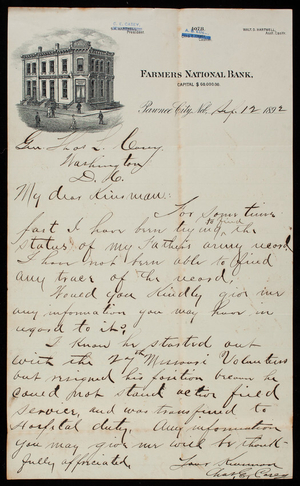 President
HOLT C. HARTWELL,
Asst. Cash.
FARMERS NATIONAL BANK,
CAPITAL $60,000.00.
Pawnee City, Neb. Sep. 12 1892
Gen Thos L. Casey
Washington
D.C.
My dear Kinsman:
For some time
past I have been trying to find the
status of my Fathers army record
I have not been able to find
any trace of the record.
Would you Kindly give me
any information you may have in
regard to it?
I know he started out
with the 27th Missouri Volunteers
but resigned his position because he
could not stand active field
service, and was transferred to
Hospital duty. Any information
you may give me will be thank-
fully appreciated
Your Kinsman
Casey